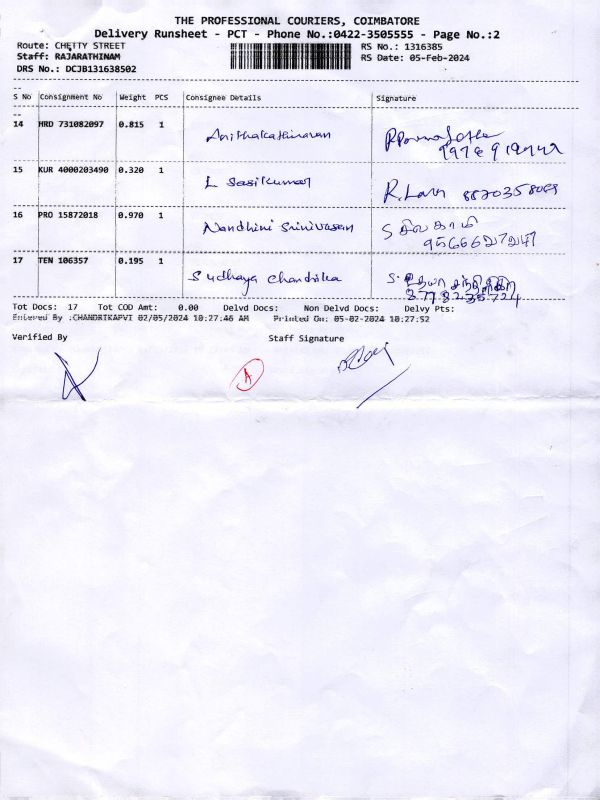 THE PROFESSIONAL COURIERS, COIMBATORE
Delivery Runsheet - PCT - Phone No.:0422-3505555 - Page No.:2
Route: CHETTY STREET RS No.: 1316385
Staff: RAJARATHINAM RS Date: 05-Feb-2024
DRS No.: DCJB131638502
S No Consignment No Weight PCS Consignee Details Signature
14 HRD 731082097 0.815 1 Anithakathiravan
15 KUR 4000203490 0.320 1 L Sasikumar R.Lavi
16 PRO 15872018 0.970 1 Nandhini Srinivasan S சிவகாமி
17 TEN 106357 0.195 1 Sudhaya Chandrika
Tot Docs: 17 Tot COD Amt: 0.00 Delvd Docs: Non Delvd Docs: Delvy Pts:
Entered By :CHANDRIKAPVI 02/05/2024 10:27:46 AM Printed On: 05-02-2024 10:27:52
Verified By Staff Signature
A